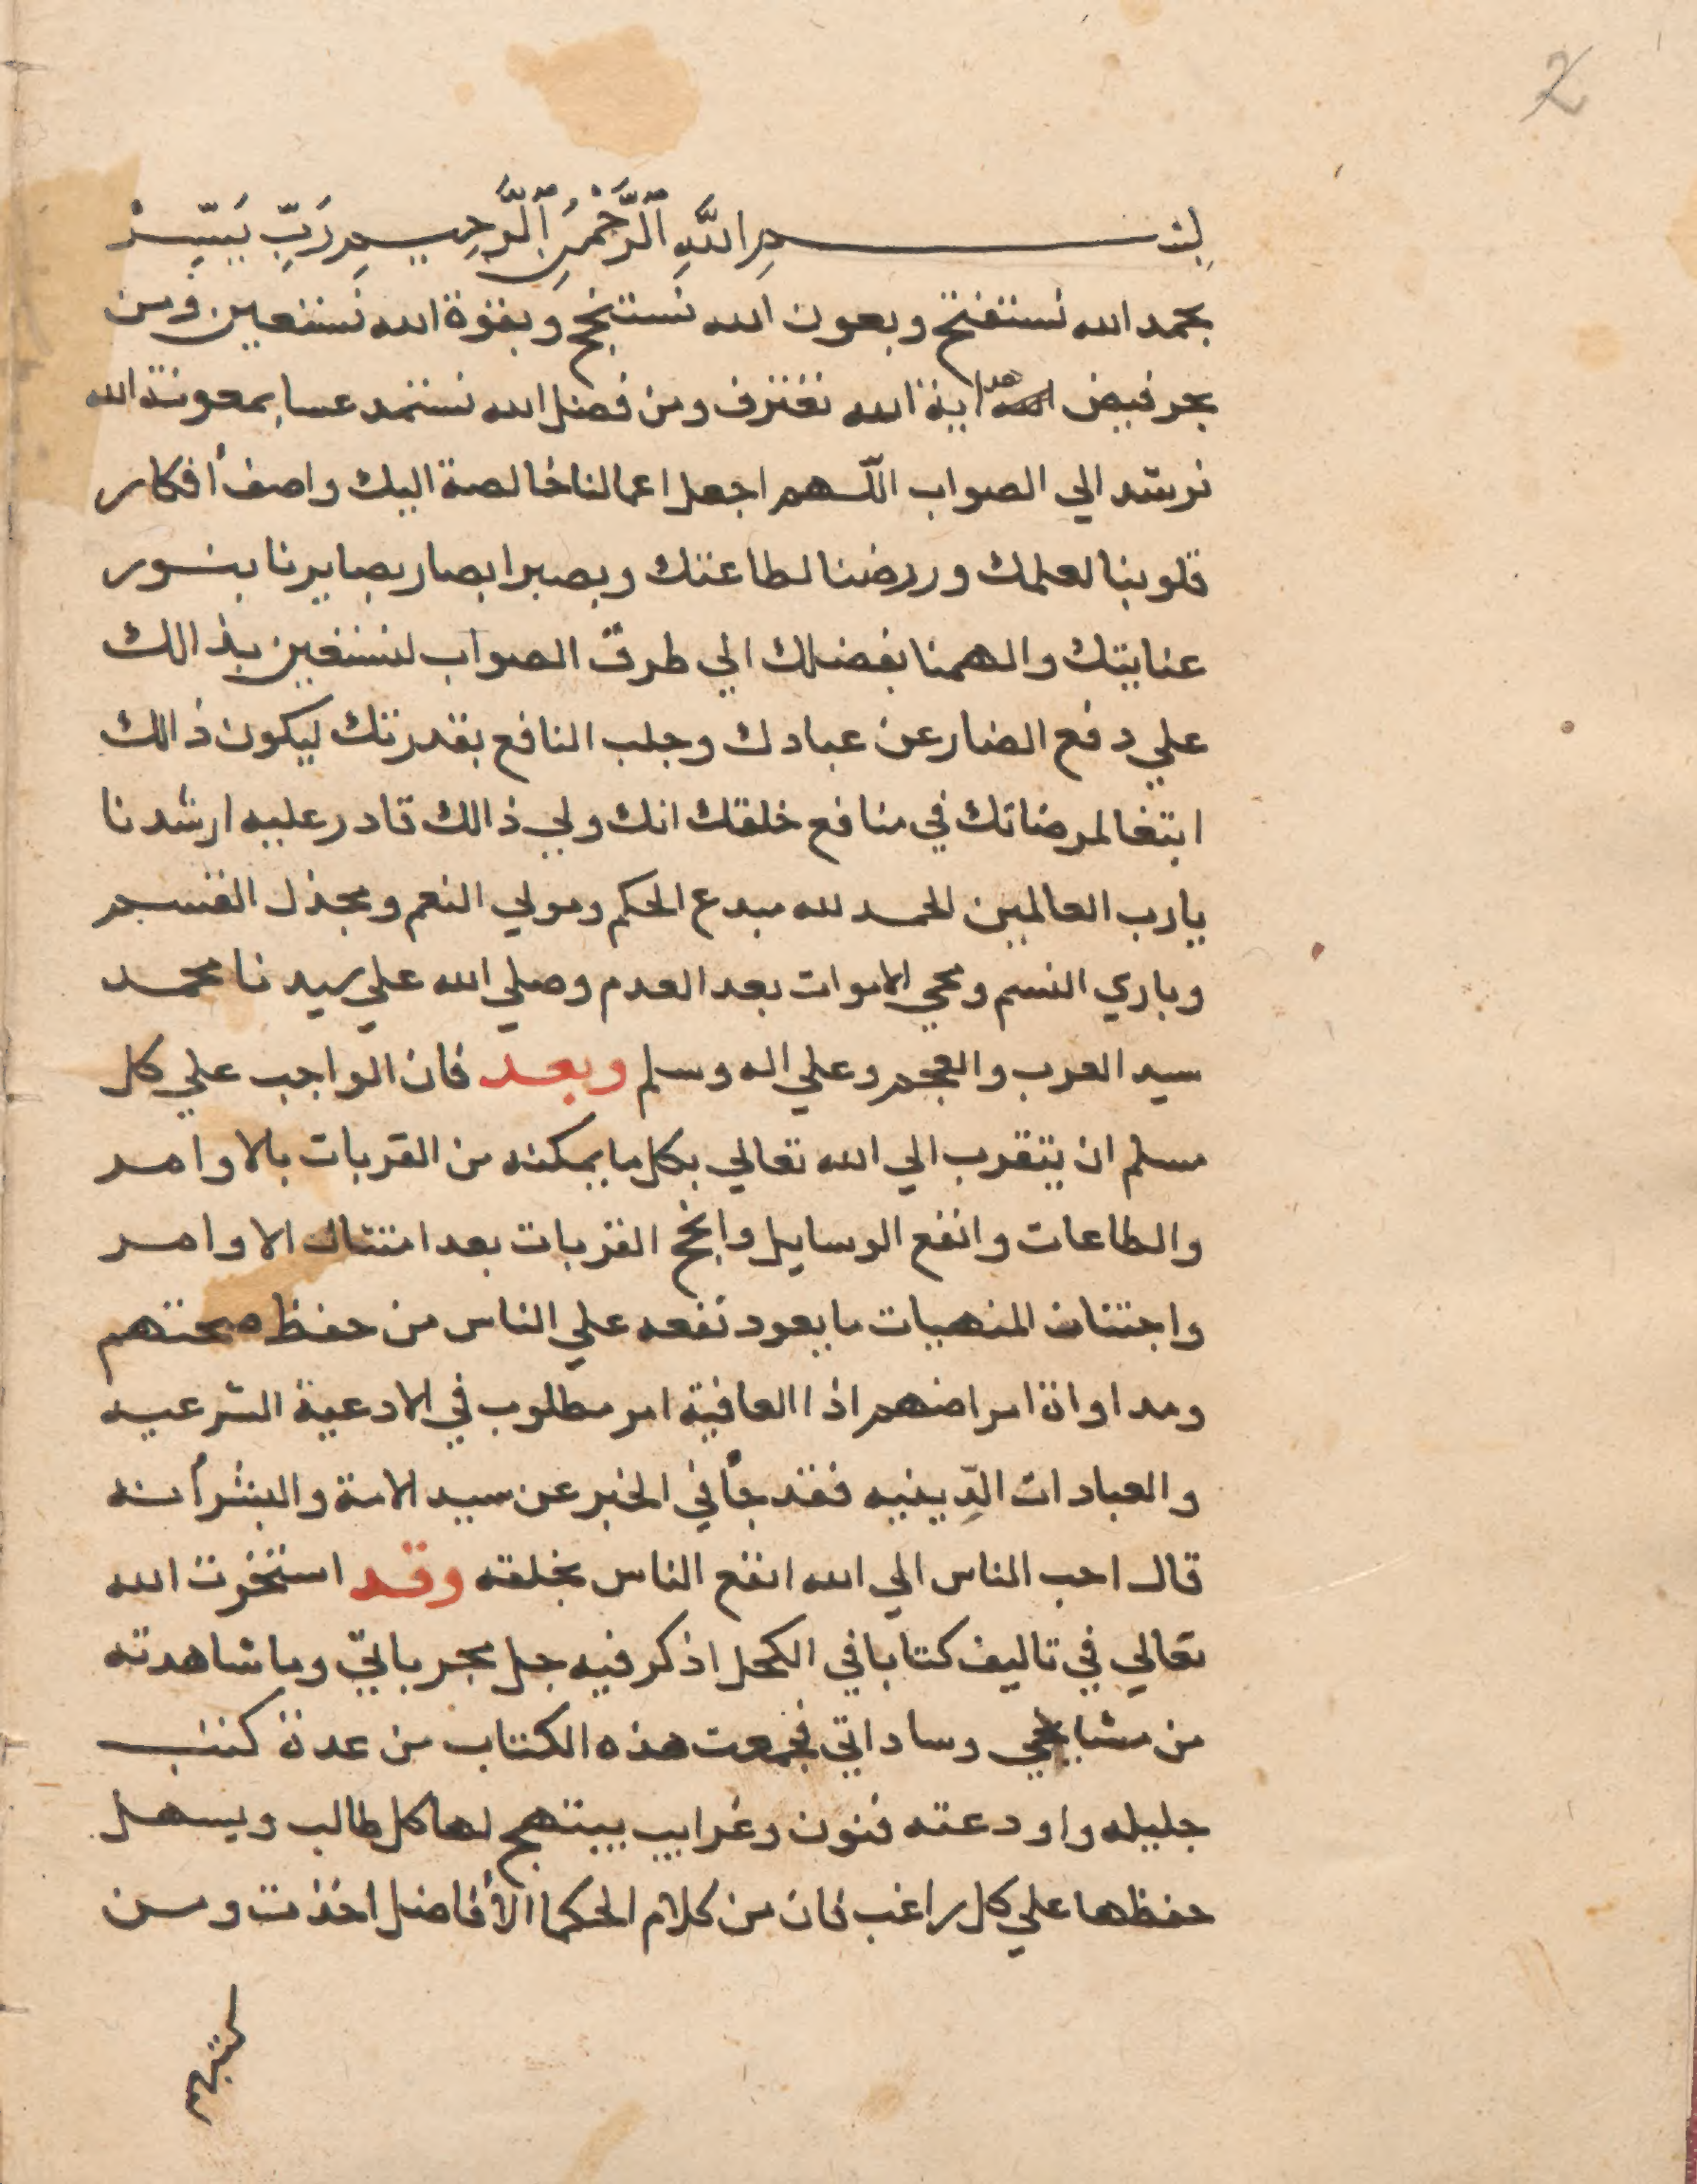 2
بسم الله الرحمن الرحيم رب يسر
بحمد الله نستفتح وبعون الله نستنجح وبقوة الله نستعين ومن
بحر فيض هداية الله نغترف ومن فضل الله نستمد عسا بمعونة الله
نرشد الي الصواب اللهم اجعل اعمالنا خالصة اليك واصف أفكار
قلوبنا لعلمك وررضنا لطاعتك وبصر ابصار بصايرنا بنور
عنايتك والهمنا بفضلك الي طرق الصواب لنستعين بذالك
علي دفع الضار عن عبادك وجلب النافع بقدرتك ليكون ذالك
ابتغا لمرضاتك في منافع خلقك انك ولي ذالك قادر عليه ارشدنا
يارب العالمين الحمد لله مبدع الحكم ومولي النعم ومجذل القسم
وباري النسم ومحي الاموات بعد العدم وصلي الله علي سيدنا محمد
سيد العرب والعجم وعلي اله وسلم وبعد فان الواجب علي كل
مسلم ان يتقرب الي الله تعالي بكل ما يمكنه من القربات بالاوامر
والطاعات وانفع الوسايل وانجح القربات بعد امتثال الاوامر
واجتناب المنهيات ما يعود نفعه علي الناس من حفظ صحتهم
ومداواة امراضهم اذا العافية امر مطلوب في الادعية الشرعيه
والعبادات الدِّينيه فقد جأ في الخبر عن سيد الامة والبشر أنه
قال احب الناس الي الله انفع الناس بخلقه وقد استخرت الله
تعالي في تاليف كتابا في الكحل اذكر فيه جل مجرباتي وما شاهدته
من مشايخي وساداتي فجمعت هذه الكتاب من عدة كتب
جليله واودعته فنون وغرايب يبتهج لها كل طالب ويسهل
حفظها علي كل راغب فان من كلام الحكما الأفاضل اخذت ومن